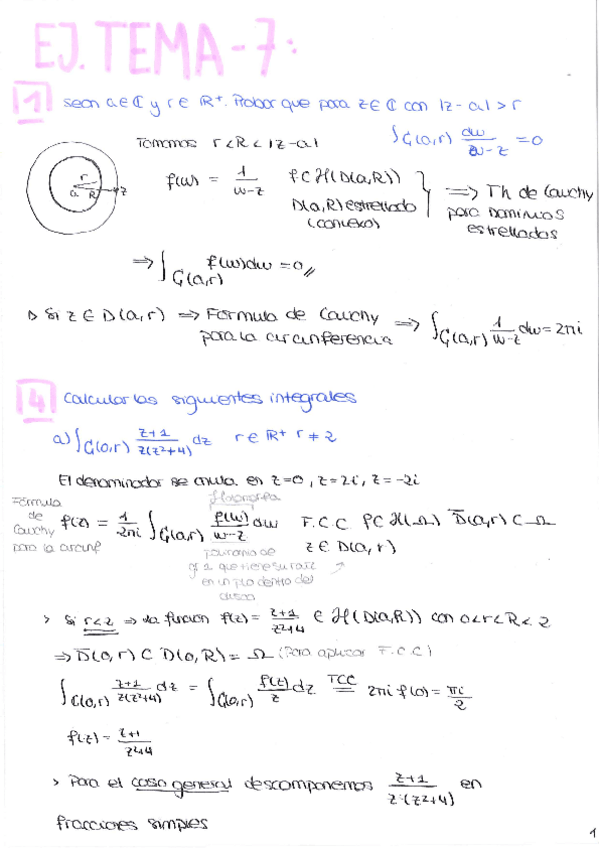 EJ. TEMA - 7:
1 sean a∈ℂ y r∈ℝ⁺. Probar que para z∈ℂ con |z-a|>r
∫C(a,r) dw/(w-z) = 0
Tomamos r<R<|z-a|
r
a R z
f(w) = 1/(w-z) f∈H(D(a,R))
D(a,R) estrellado
(convexo)
⟹ Th de Cauchy
para Dominios
estrellados
⟹ ∫C(a,r) f(w)dw = 0 //
▷ Si z∈D(a,r) ⟹ Fórmula de Cauchy
para la circunferencia
⟹ ∫C(a,r) 1/(w-z) dw = 2πi
4 Calcular las siguientes integrales
a) ∫C(0,r) (z+1)/(z(z²+4)) dz r∈ℝ⁺ r≠2
El denominador se anula en z=0, z=2i, z=-2i
Fórmula
de
Cauchy
para la circunf
Holomorfa
f(z) = 1/2πi ∫C(a,r) f(w)/(w-z) dw F.C.C f∈H(Ω) D̅(a,r)⊂Ω
z∈D(a,r)
polinomio de
gr 1 que tiene su raíz
en un pto dentro del
disco
> Si r<2 ⟹ la función f(z) = (z+1)/(z²+4) ∈ H(D(0,R)) con 0<r<R<2
⟹ D̅(0,r) ⊂ D(0,R) = Ω (Para aplicar F.C.C)
∫C(0,r) (z+1)/(z(z²+4)) dz = ∫C(0,r) f(z)/z dz TCC= 2πi f(0) = πi/2
f(z) = (z+1)/(z²+4)
> Para el caso general descomponemos (z+1)/(z·(z²+4)) en
fracciones simples
1